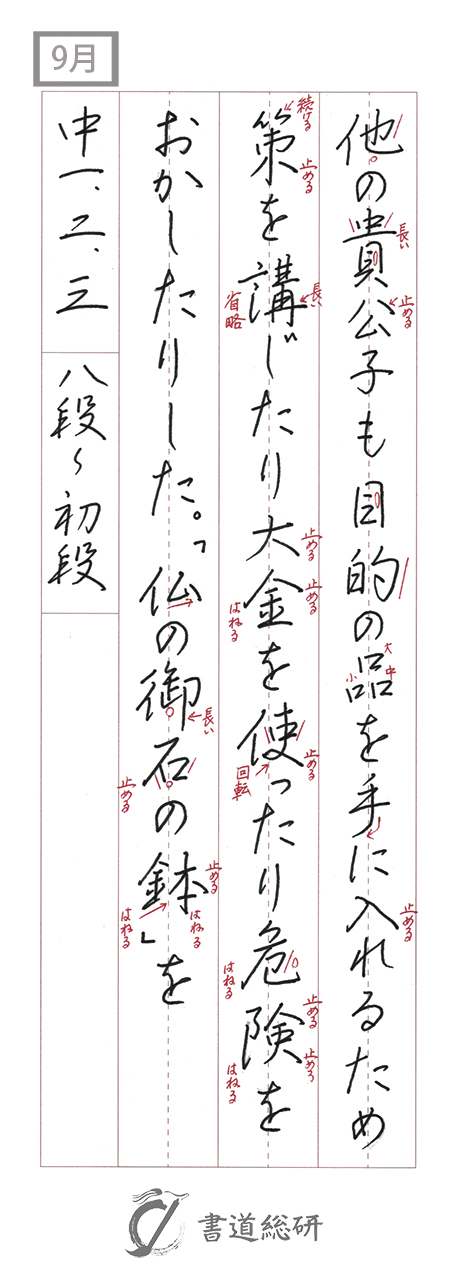 9月
他の貴公子も目的の品を手に入れるため
長い
止める
大
中
小
止める
策を講じたり大金を使ったり危険を
続ける
止める
長い
省略
止める
止める
はねる
止める
回転
はねる
止める
止める
はねる
おかしたりした。「仏の御石の鉢」を
長い
止める
止める
はねる
はねる
中一、二、三
八段〜初段
書道総研